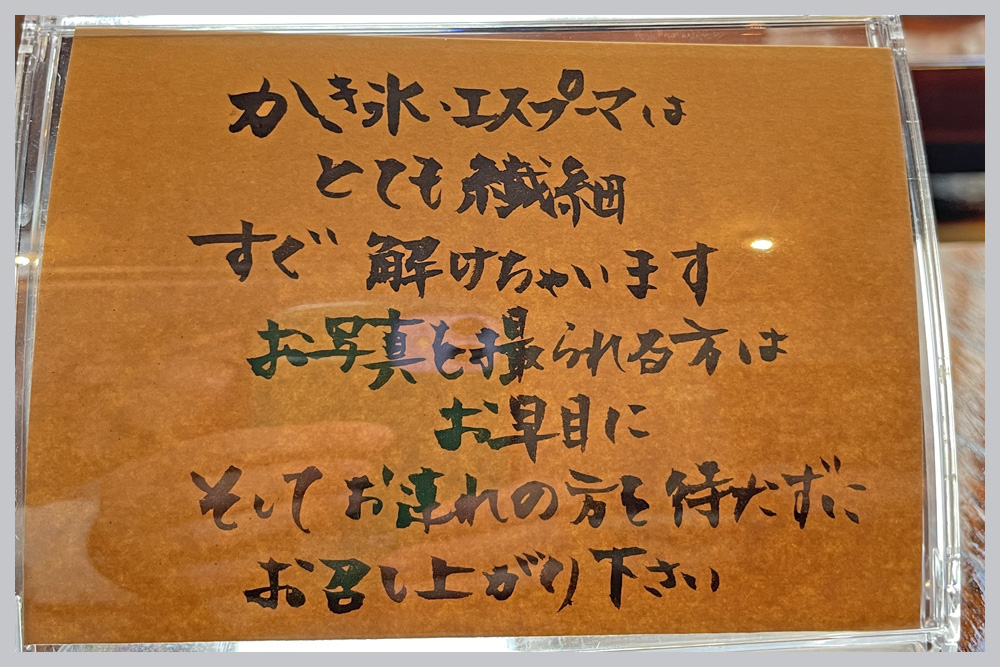 かき氷・エスプーマは
とても繊細
すぐ解けちゃいます
お写真を撮られる方は
お早目に
そしてお連れの方を待たずに
お召し上がり下さい